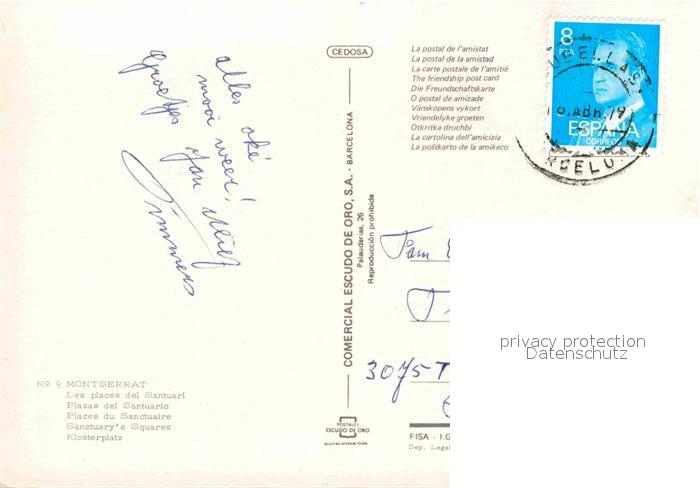 alles oké
mooi weer!
Groetjes
Jan
CEDOSA
COMERCIAL ESCUDO DE ORO, S.A. - BARCELONA
Palaudarias, 26
Reproducción prohibida
La postal de l'amistat
La postal de la amistad
La carte postale de l'amitié
The friendship post card
Die Freundschaftskarte
O postal de amizade
Vänskopens vykort
Vriendelyke groeten
Otkritka druchbi
La cartolina dell'amicizia
La poŝtkarto de la amikeco
8
PTA
ESPAÑA
CORREOS
ABR. 79
Fam
3075 T
privacy protection
Datenschutz
Nº 9 MONTSERRAT
Les places del Santuari
Plazas del Santuario
Places du Sanctuaire
Sanctuary's Squares
Klosterplatz
POSTALES
ESCUDO DE ORO
FISA - I.G
Dep. Legal